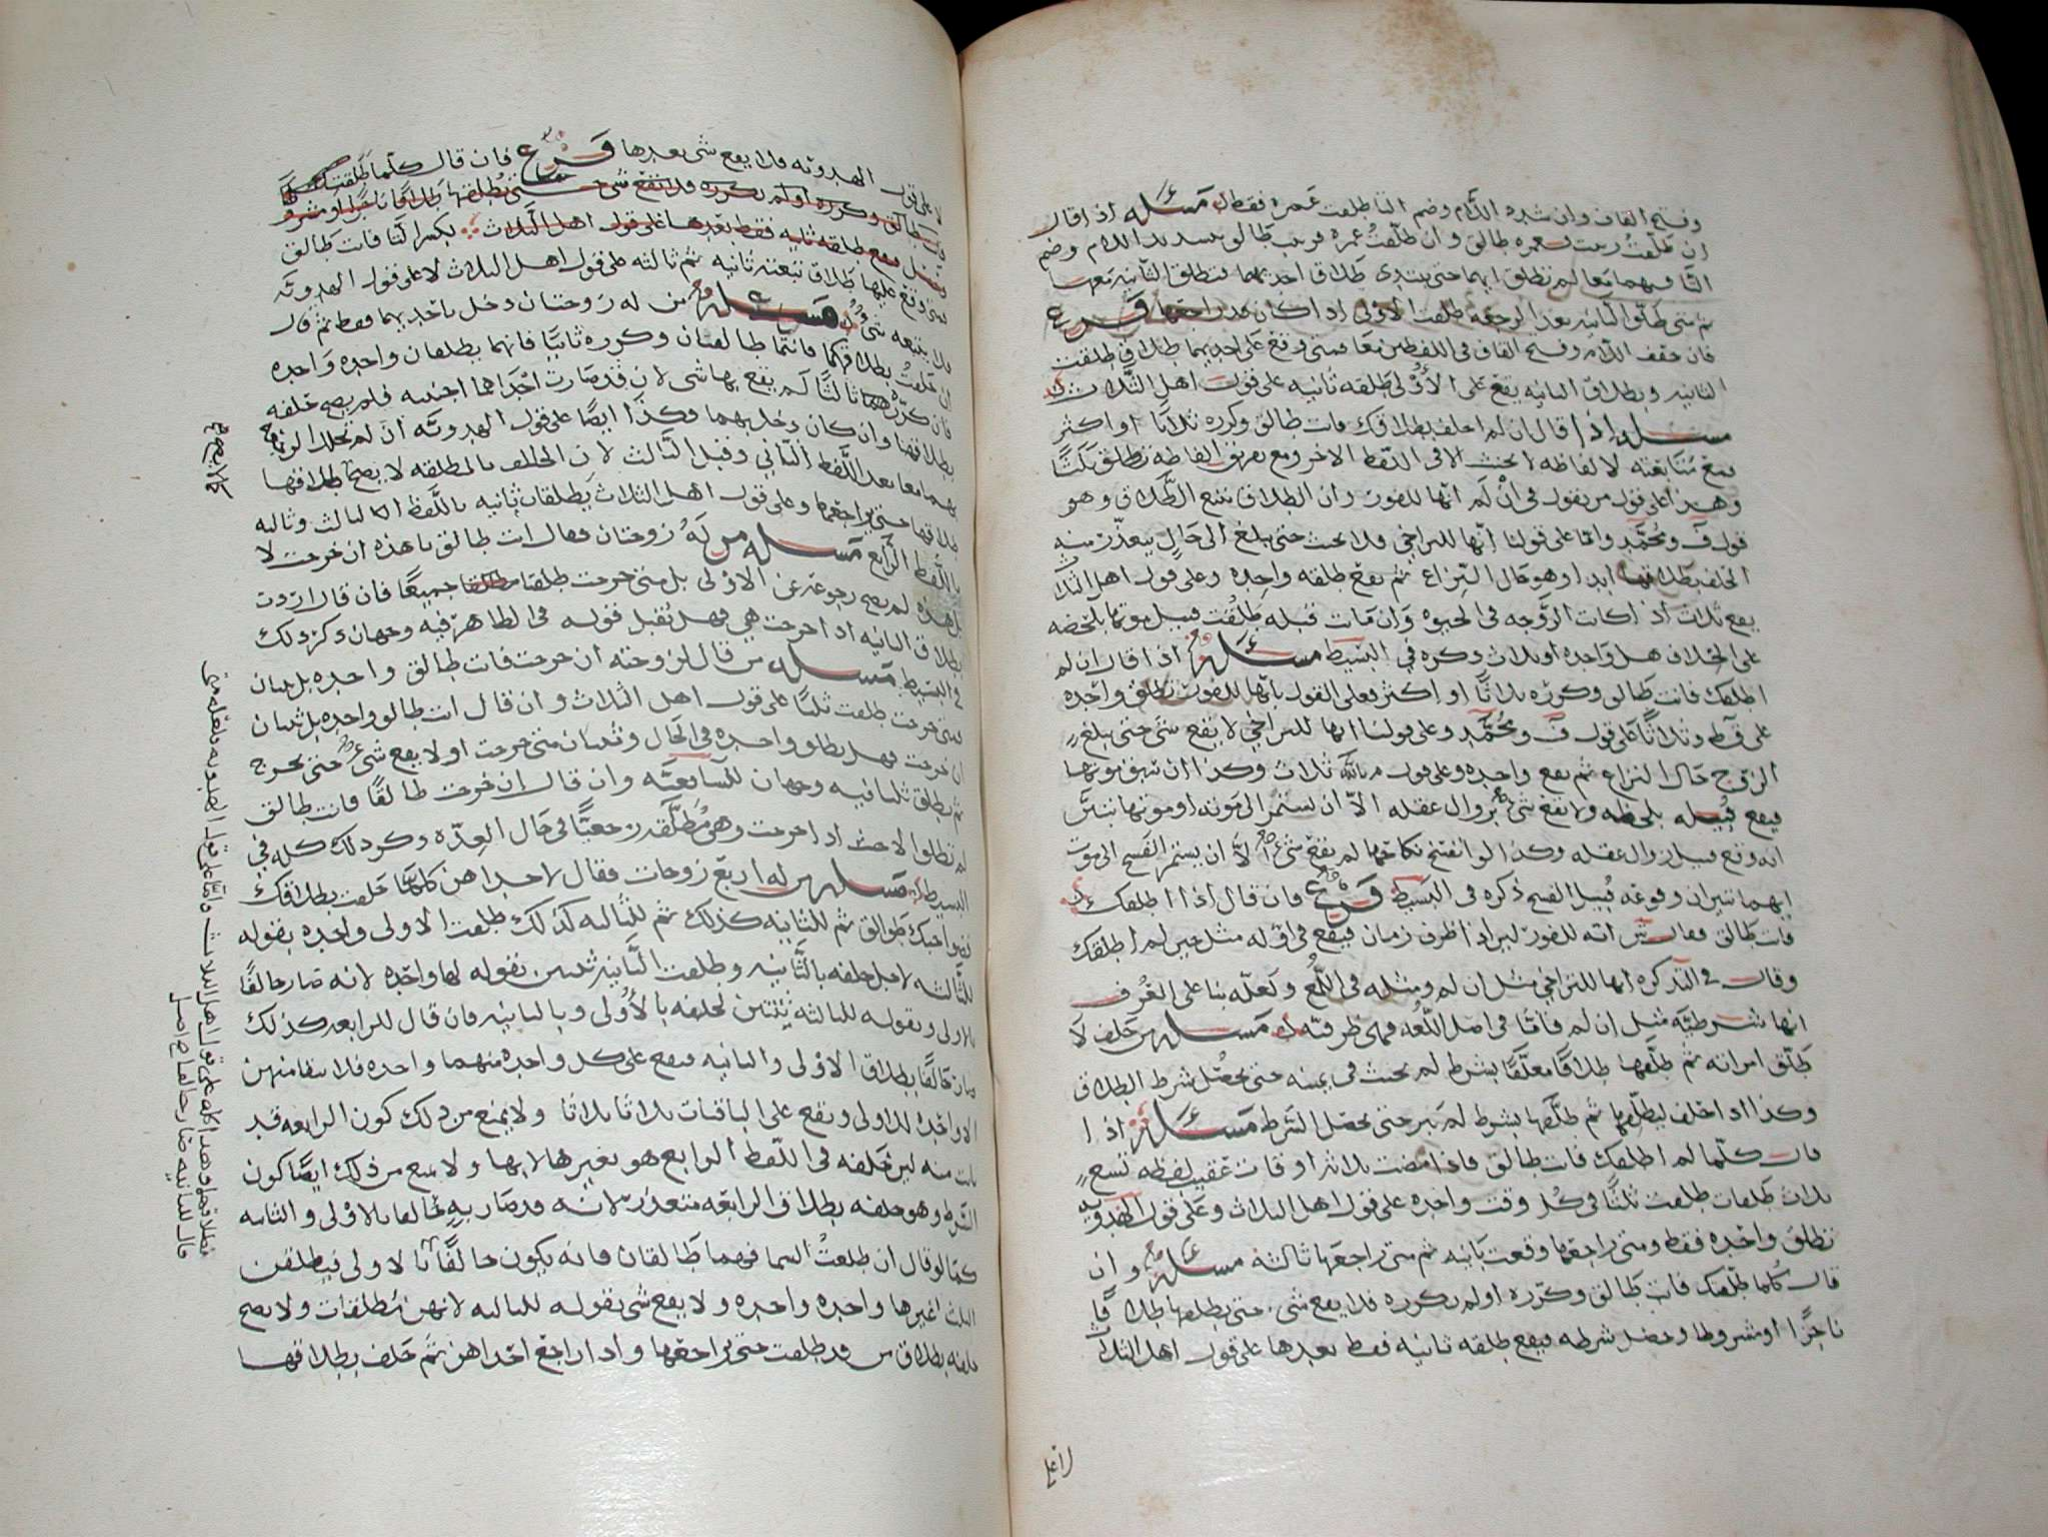 وفتح القاف وان شدد اللام وضم التا طلقت عمرة فقط مسئله اذا قال
ان طلقت زينب فعمره طالق وان طلقت عمره فزينب طالق بتشديد اللام وضم
التا فيهما معا لم تطلق ايهما حتى يبتدى طلاق احديهما فتطلق الثانيه معها
ثم متى طلق الثانيه بعد الرجعه طلقت الاولى اذا كان قد راجعها فرع
فان خفف اللام وفتح القاف فى اللفظين معا فمتى وقع على احديهما طلاق طلقت
الثانيه وبطلاق الثانيه يقع على الأولى طلقه ثانيه على قول اهل الثلاث
مسئله اذا قال ان لم احلف بطلاقك فانت طالق وكرره ثلاثا او اكثر
فمع متابعته لالفاظه لا يحنث الا فى اللفظ الاخر ومع تفريق الفاظه تطلق ثلثا
وهذا على قول من يقول فى ان لم انها للفور وان الطلاق يتبع الطلاق وهو
قول ف ومحمد واما على قولنا انها للتراخي فلا يحنث حتى يبلغ الى حال يتعذر منه
الحلف بطلاقها ابدا وهو حال النزاع ثم يقع طلقه واحده وعلى قول اهل الثلاث
يقع ثلاث اذا كانت الزوجه فى الحيوه وان ماتت قبله طلقت قبيل موتها بلحظه
على الخلاف هل واحده او ثلاث ذكره في البسيط مسئله اذا قال ان لم
اطلقك فانت طالق وكرره ثلاثا او اكثر فعلى القول بانها للفور تطلق واحده
على قول ط وثلاثا على قول ف ومحمد وعلى قولنا انها للتراخي لا يقع شى حتى يبلغ
الزوج حال النزاع ثم يقع واحده وعلى قول م بالله ثلاث وكذا ان سبق موتها
فيقع قبيله بلحظه ولا يقع شى بزوال عقله الا ان يستمر الى موته او موتها تبين
انه وقع قبيل زوال عقله وكذا لو انفسخ نكاحها لم يقع شى الا ان يستمر الفسخ الى موت
ايهما تبين ان وقوعه قبيل الفسخ ذكره فى البسيط فرع فان قال اذا لم اطلقك
فانت طالق فقال ش انه للفور لان اذا ظرف زمان فيقع فى قوله مثل حين لم اطلقك
وقال فى التذكره انها للتراخي مثل ان لم ومثله فى اللمع ولعله بنا على العرف
انها شرطيه مثل ان لم فاما فى اصل اللغه فهى ظرفيه مسئله من حلف لا
طلق امراته ثم طلقها طلاقا معلقا بشرط لم يحنث فى يمينه حتى يحصل شرط الطلاق
وكذا اذا حلف ليطلقها ثم طلقها بشرط لم يبر حتى يحصل الشرط مسئله اذا
قال كلما لم اطلقك فانت طالق فاذا مضت ثلاثه اوقات عقيب لفظه تسع
ثلاث طلقات طلقت ثلثا فى كل وقت واحده على قول اهل الثلاث وعلى قول الهدويه
تطلق واحده فقط ومتى راجعها وقعت ثانيه ثم متى راجعها ثالثه مسئله وان
قال كلما طلقتك فانت طالق وكرره او لم يكرره فلا يقع شى حتى يطلقها طلاقا
ناجزا او مشروطا وحصل شرطه فيقع طلقه ثانيه فقط بعدها على قول اهل الثلاث
لا على
لا على قول الهدويه فلا يقع شى بعدها فرع فان قال كلما طلقتك
فانت طالق وكرره او لم يكرره فلا يقع شى حتى يطلقها طلاقا ناجزا او مشروطا
وحصل فيقع طلقه ثانيه فقط بعدها على قول اهل الثلاث بكسر التا فانت طالق
فمتى وقع عليها طلاق تبعته ثانيه ثم ثالثه على قول اهل الثلاث لا على قول الهدويه
فلا يتبعه شى مسئله من له زوجتان دخل باحديهما فقط ثم قال
ان حلفت بطلاقكما فانتما طالقتان وكرره ثانيا فانهما يطلقان واحده واحده
فان كرره ثالثا لم يقع بها شى لان قد صارت احداهما اجنبيه فلم يصح حلفه
بطلاقها وان كان دخل بهما وكذا ايضا على قول الهدويه ان لم تخلل الرجعه
بهما معا بعد اللفظ الثاني وقبل الثالث لان الحلف بالمطلقه لا يصح طلاقها
طلاقها حتى يراجعها وعلى قول اهل الثلاث يطلقان ثانيه باللفظ الثالث وثالثه
باللفظ الرابع مسئله من له زوجتان فقال انت طالق يا هذه ان خرجت لا
بل هذه لم يصح رجوعه عن الاولى بل متى خرجت طلقتا جميعا فان قال اردت
بطلاق الثانيه اذا خرجت هي فهل يقبل قوله فى الظاهر فيه وجهان ذكر ذلك
في البسيط مسئله من قال لزوجته ان خرجت فانت طالق واحده بل ثنتان
فمتى خرجت طلقت ثلثا على قول اهل الثلاث وان قال انت طالق واحده بل ثنتان
ان خرجت فهل يطلق واحده فى الحال وثنتان متى خرجت او لا يقع شى حتى تخرج
ثم يطلق ثلثا فيه وجهان للشافعيه وان قال ان خرجت طالقا فانت طالق
لم تطلق الا حيث اذا خرجت وهى مطلقه رجعيا فى حال العده وكر ذلك كله في
البسيط مسئله من له اربع زوجات فقال لاحداهن كلما حلفت بطلاقك
فصواحبك طوالق ثم للثانيه كذلك ثم للثالثه كذلك طلقت الاولى واحده بقوله
للثالثه لاجل حلفه بالثانيه وطلقت الثانيه بقوله لها واحده لانه صار حالفا
بالاولى وبقوله للثالثه ثنتين لحلفه بالأولى وبالثانيه فان قال للرابعه كذلك
كان حالفا بطلاق الاولى والثانيه فيقع على كل واحده منهما واحده فلا
الا واحده للاولى ويقع على الباقيات ثلاثا ثلاثا ولا يمنع من ذلك كون الرابعه قد
بانت منه لان حلفه فى اللفظ الرابع هو بغيرها لا بها ولا يمنع من ذلك ايضا كون
الشرط وهو حلفه بطلاق الرابعه متعذر لانه قد صار به حالفا بالاولى والثانيه
كما لو قال ان طلعت السما فهما طالقان فانه يكون حالفا بالاولى فيطلقن
الثلث غيرها واحده واحده ولا يقع شى بقوله للثالثه لانهن مطلقات ولا يصح
حلفه بطلاق من قد طلقت حتى يراجعها واذا راجع احداهن ثم حلف بطلاقها